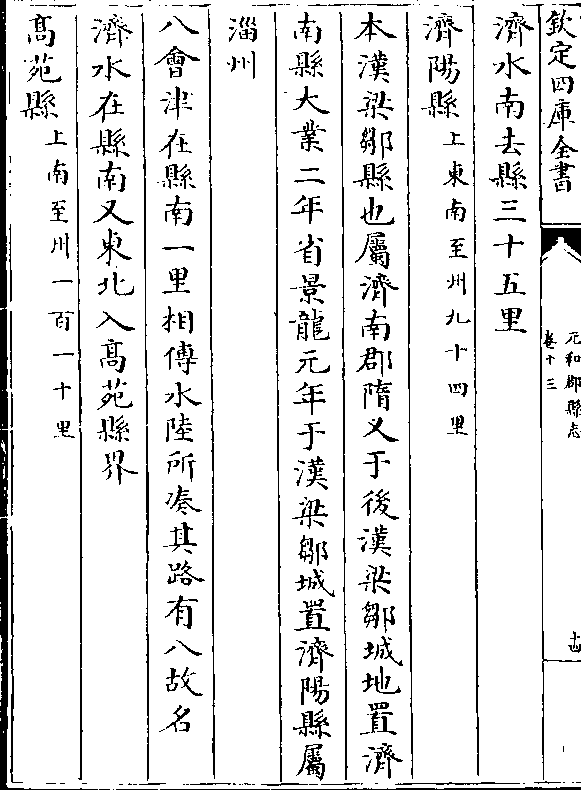 欽定四庫全書
元和郡縣志
卷十三
十四
濟水南去縣三十五里
濟陽縣上東南至州九十四里
本漢梁鄒縣也屬濟南郡隋又于後漢梁鄒城地置濟
南縣大業二年省景龍元年于漢梁鄒城置濟陽縣屬
淄州
八會津在縣南一里相傳水陸所凑其路有八故名
濟水在縣南又東北入髙苑縣界
髙苑縣上南至州一百一十里